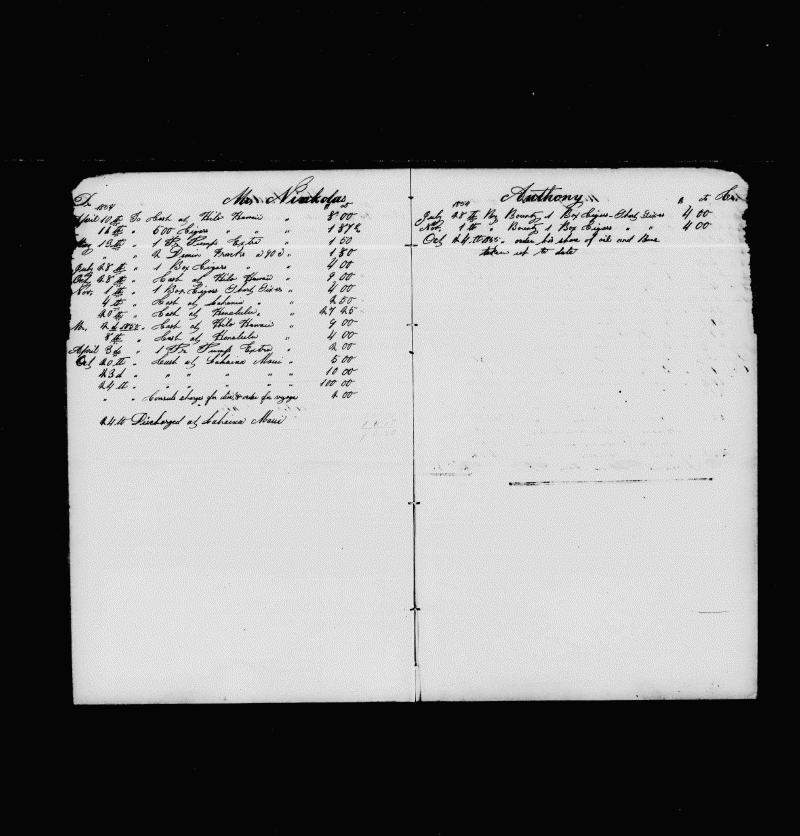 Dr 1854 Mr. Nicholas
April 10th To Cash at Hilo Hawaii " 8 00
16th " 600 Cigars " " " 1 87½
May 13th " 1 Pr Pumps Extra " 1 50
" " " 2 Denim Frocks @ 90 c " 1 80
July 28th " 1 Box Cigars " " 4 00
Oct 28th " Cash at Hilo Hawaii " 9 00
Nov. 1th " 1 Box Cigars Short Sixes " 4 00
4th " Cash at Lahaina " " 2 50
20th " Cash at Honolulu " " 27 25
2d 1855 " Cash at Hilo Hawaii " 9 00
8th " Cash at Honolulu " 4 00
April 3d " 1 Pr Pumps Extra " 2 00
Oct 20th " Cash at Lahaina Maui " 5 00
23d " " " " " " 10 00
24th " " " " " " 100 00
" " Consuls charges for dis & order for voyage 2 00
24th Discharged at Lahaina Maui
1854 Anthony " $ cts Cr.
July 28th By Bounty 1 Box Cigars Short Sixes 4 00
Nov. 1th " Bounty 1 Box Cigars " " 4 00
Oct 24th 1855 " order his share of oil and Bone
taken up to date